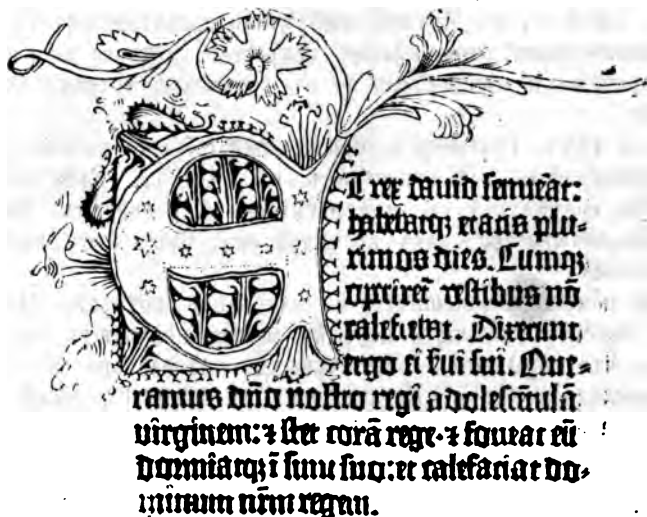 ET rex david senuerat:
habebatq; etatis plu-
rimos dies. Cumq;
opeiret vestibus nō
calefiebat. Dixerunt
ergo ei s̄vi sui. Que-
ramus dn̄o nostro regi adolescētulā
virginem: ⁊ stet corā rege · ⁊ foveat eū
dormiatq; ī sinu suo: et calefaciat do-
minum nr̄m regem.